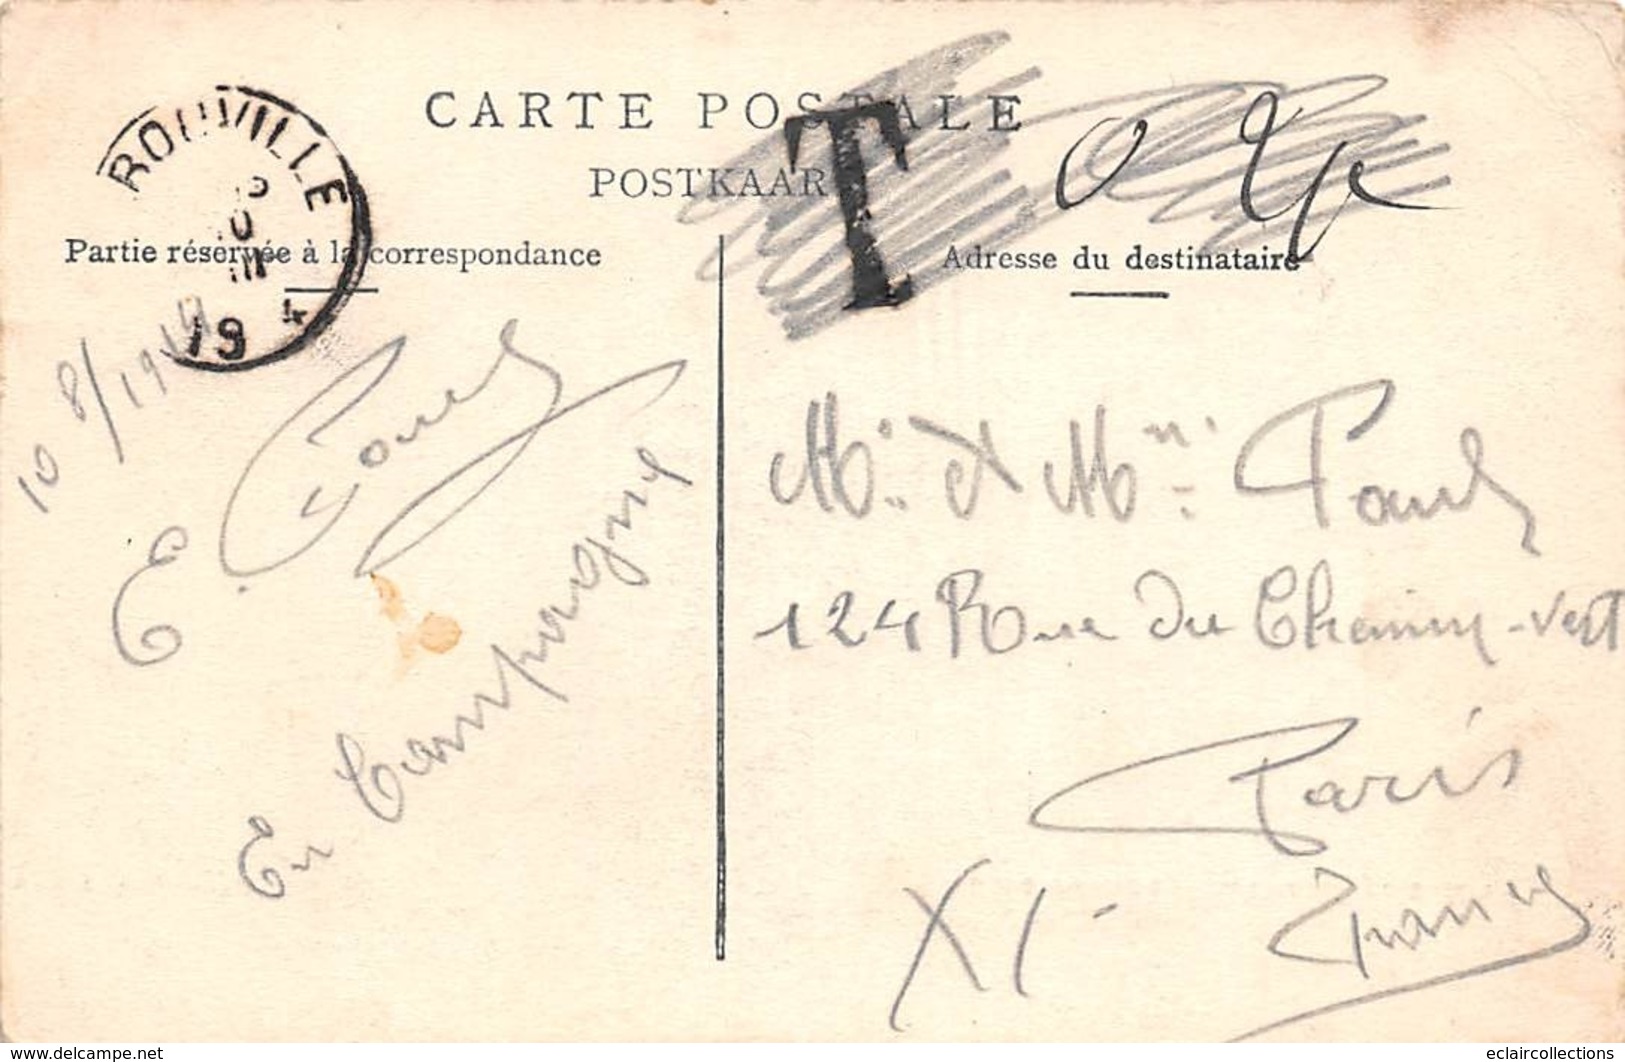 CARTE POSTALE
POSTKAAR
T
Partie réservée à la correspondance
Adresse du destinataire
19 4
10 8/1914
E. Paul
En Campagne
Mr. & Mme. Paul
124 Rue du Chemin-Vert
Paris
XIe
France
www.delcampe.net
eclaircollections